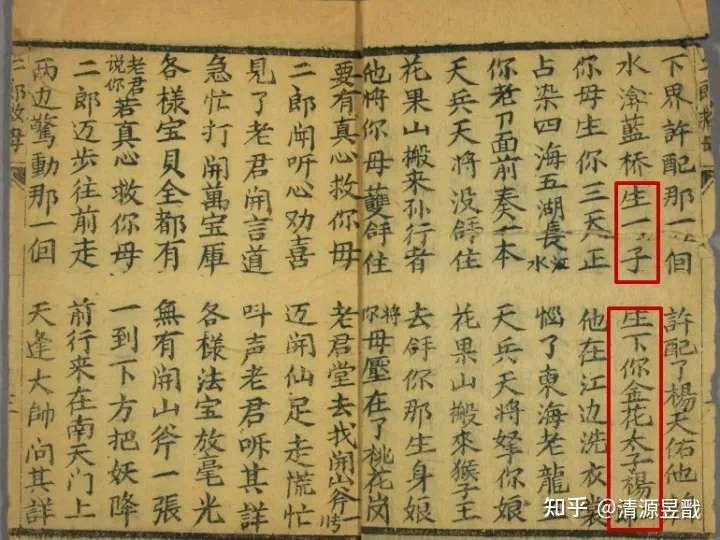 下界許配那一個 許配了楊天佑他
水渰藍桥生一子 生下你金花太子楊
你母生你三天正 他在江边洗衣裳
占染四海五湖長江水 惱了東海老龍王
你老刀面前奏一本 天兵天将拏了你娘
天兵天将没拿住 花果山搬來猴子王
花果山搬来孙行者 去拿你那生身娘
他将你母雙拿住 将你母壓在了桃花岗
要有真心救你母 老君堂去找開山斧一
二郎聞听心劝喜 迈開仙足走慌忙
見了老君開言道 呌声老君听其詳
急忙打開萬宝庫 各樣法宝放毫光
各樣宝貝全都有 無有開山斧一張
老君說你若真心救你母 一到下方把妖降
二郎迈步往前走 前行来在南天門上
两边驚動那一個 天逢大帥问其詳
二郎救母
知乎 @清源昱戬